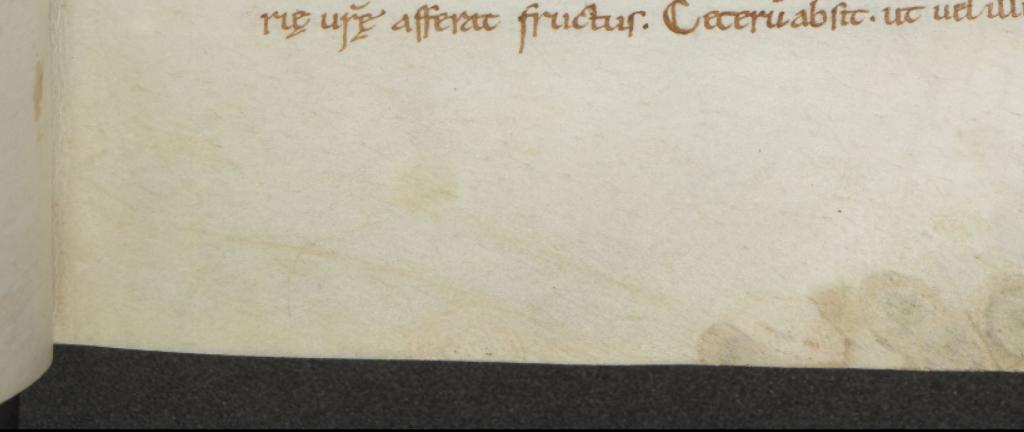 rię ur̄ę afferat fructus. Ceterū absit. ut uel illi